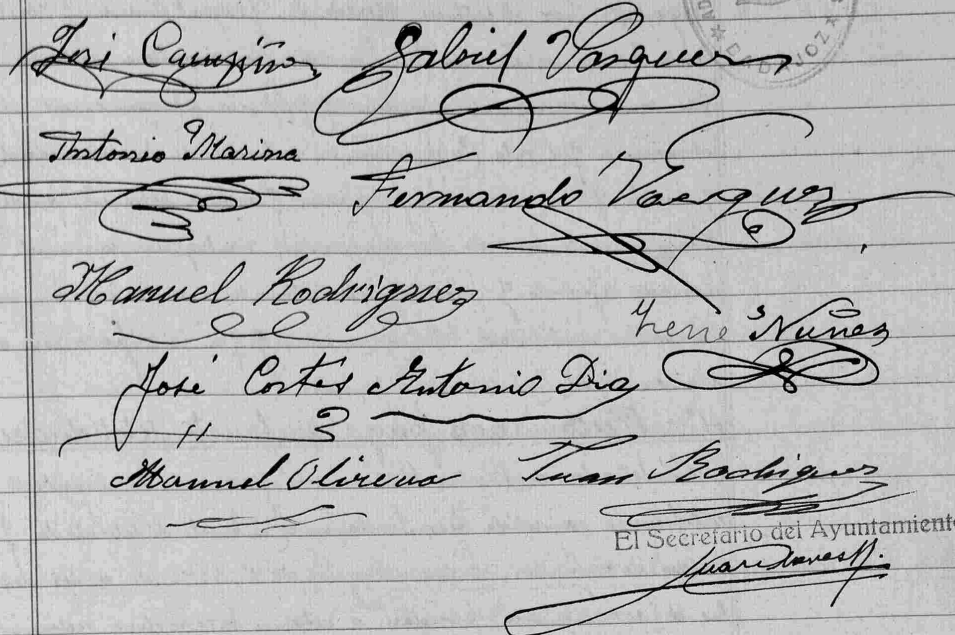 José Campiño Gabriel Vasquez
BADAJOZ
Antonio Marina
Fernando Vasquez
Manuel Rodriguez
Nuñez
José Cortés Antonio Dia
Manuel Olivera Juan Rodriguez
El Secretario del Ayuntamiento
Juan